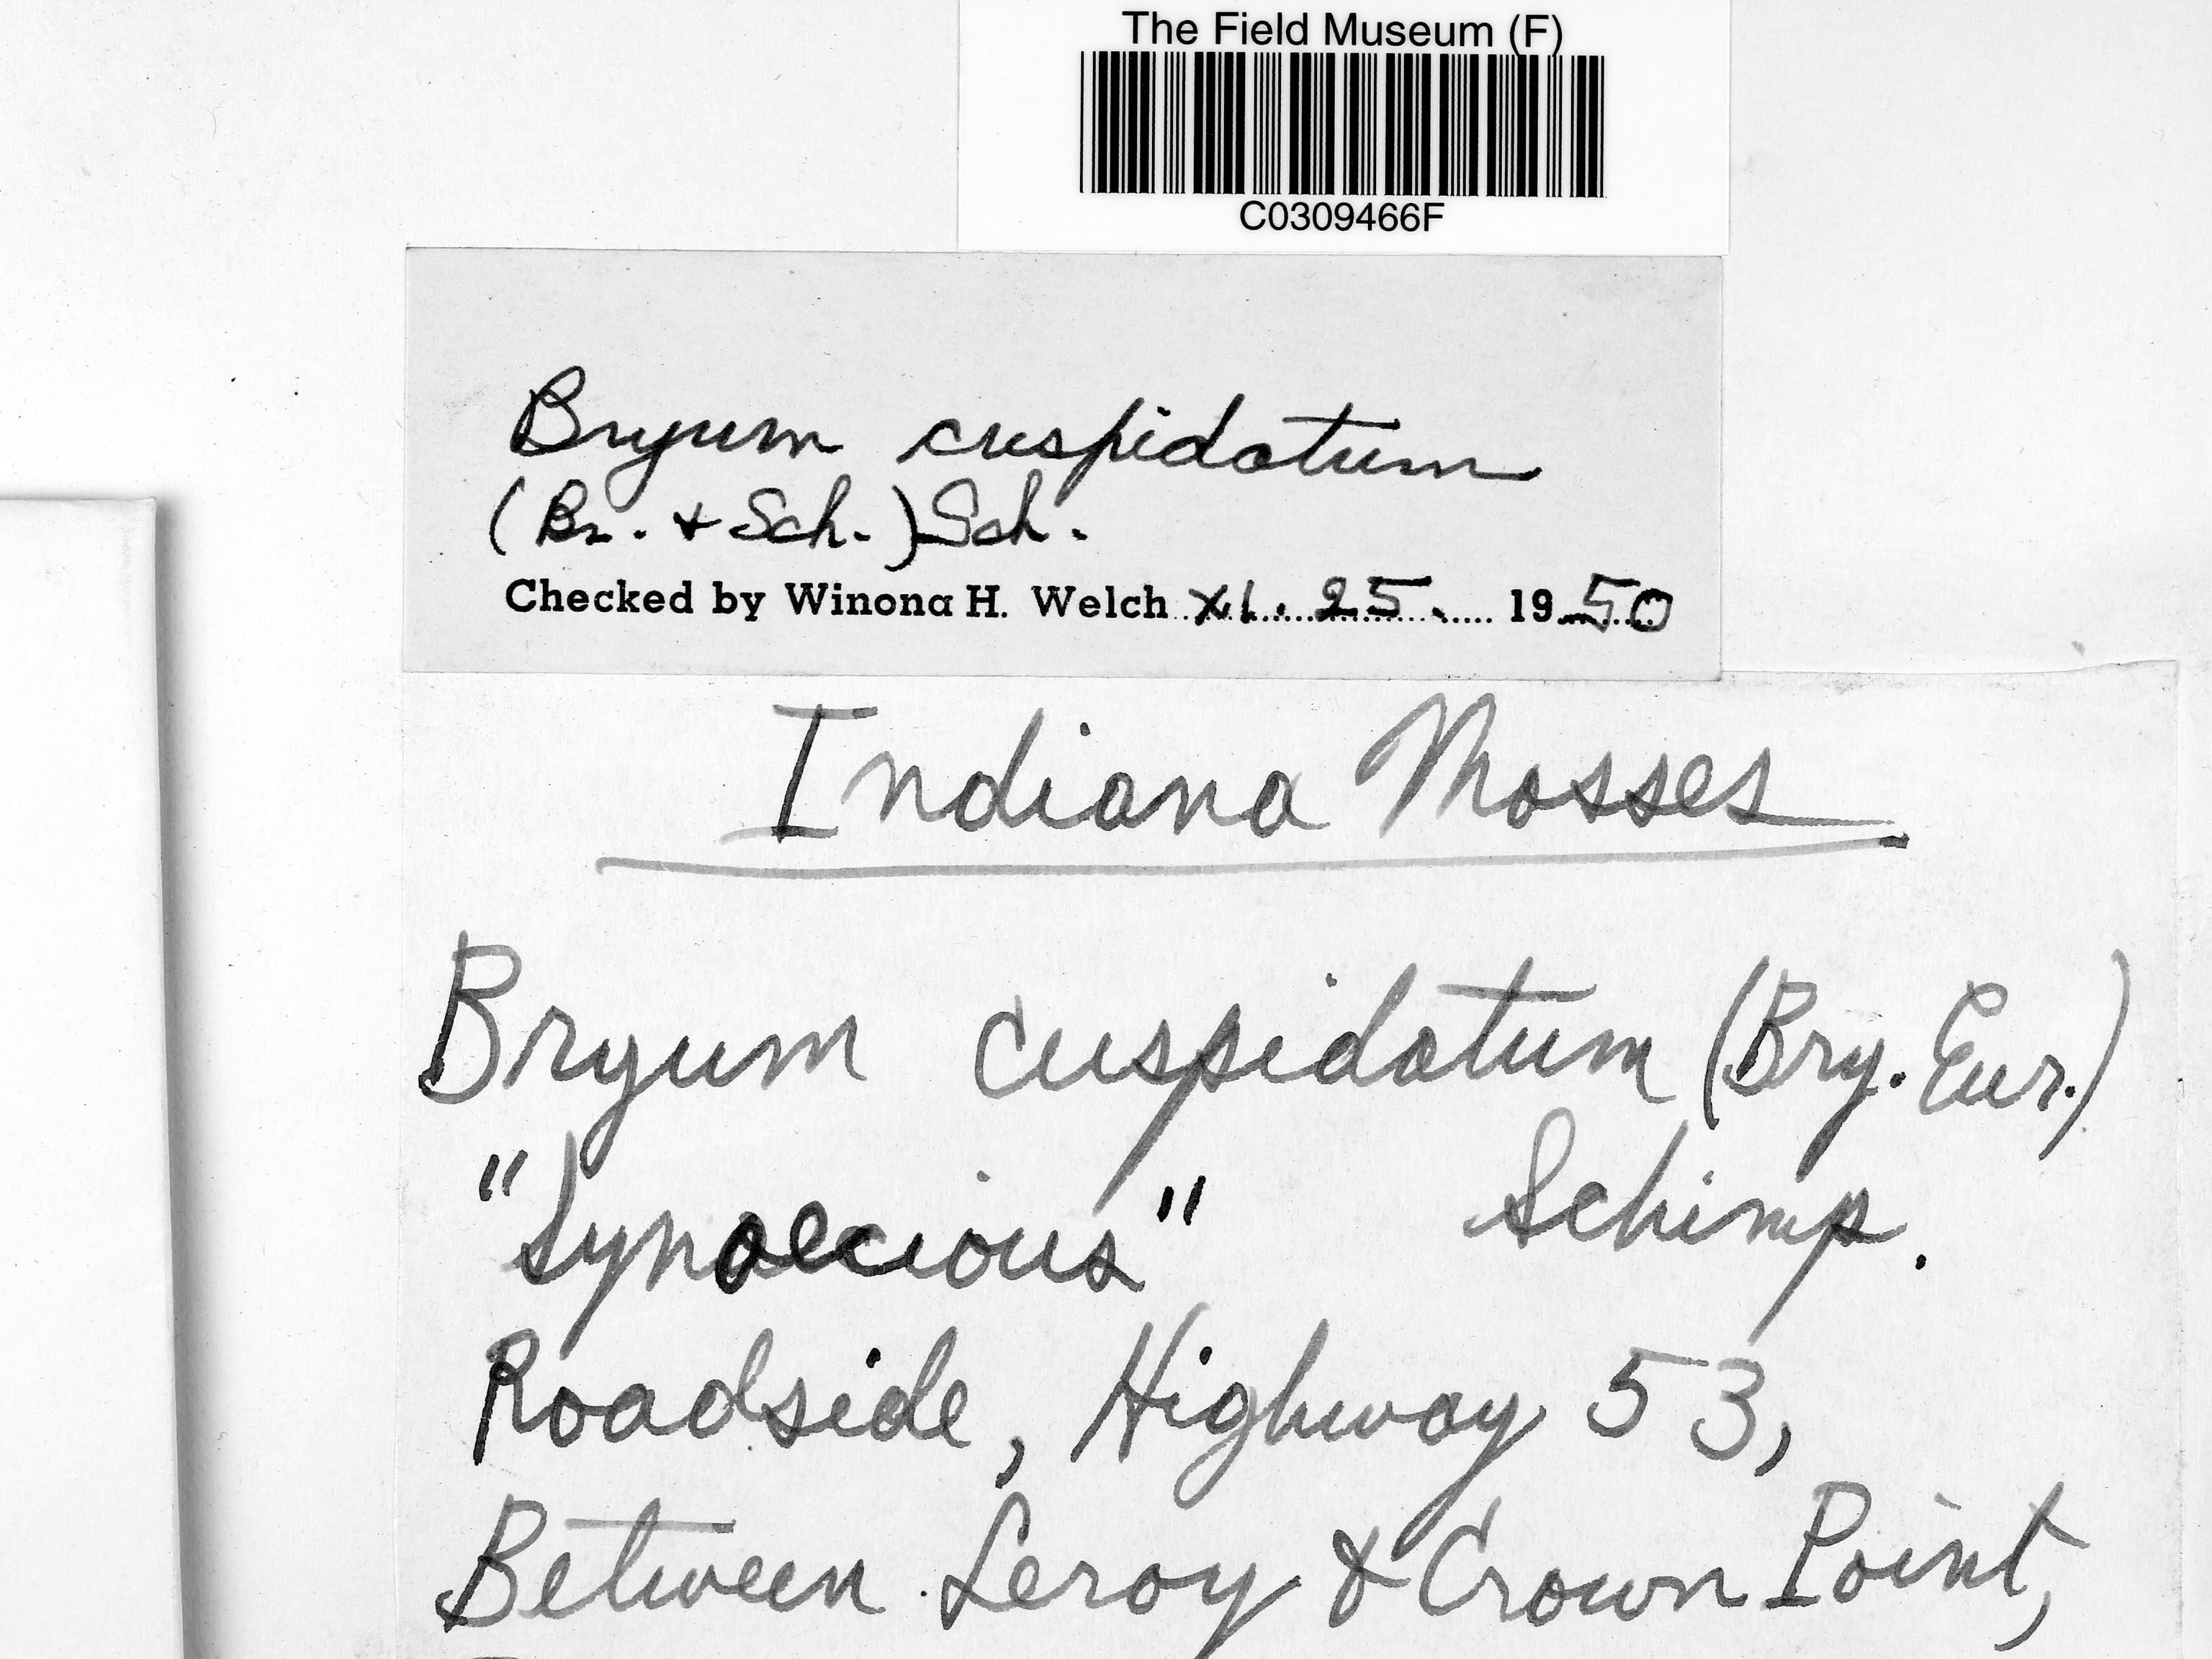 The Field Museum (F)
C0309466F
Bryum cuspidatum
(Br. + Sch.) Sch.
Checked by Winona H. Welch XI. 25. 1950
Indiana Mosses
Bryum cuspidatum (Bry. Eur.)
"Synoecious" Schimp.
Roadside, Highway 53,
Between Leroy & Crown Point,